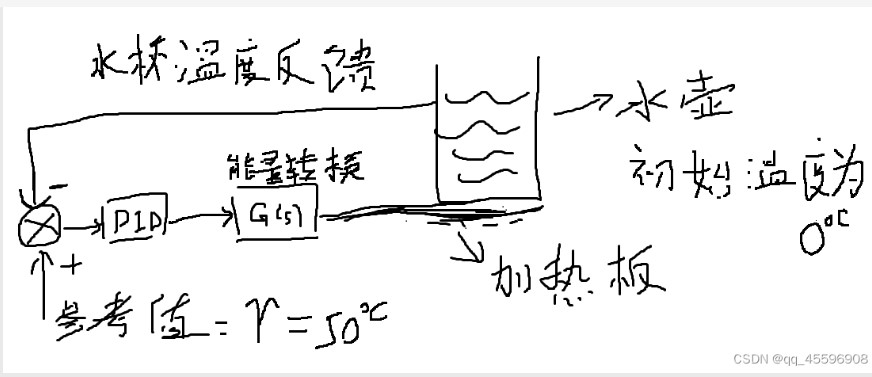 水桥温度反馈
水壶
初始温度为
0℃
能量转换
PID
G(s)
-
+
加热板
参考值=r=50℃
CSDN @qq_45596908